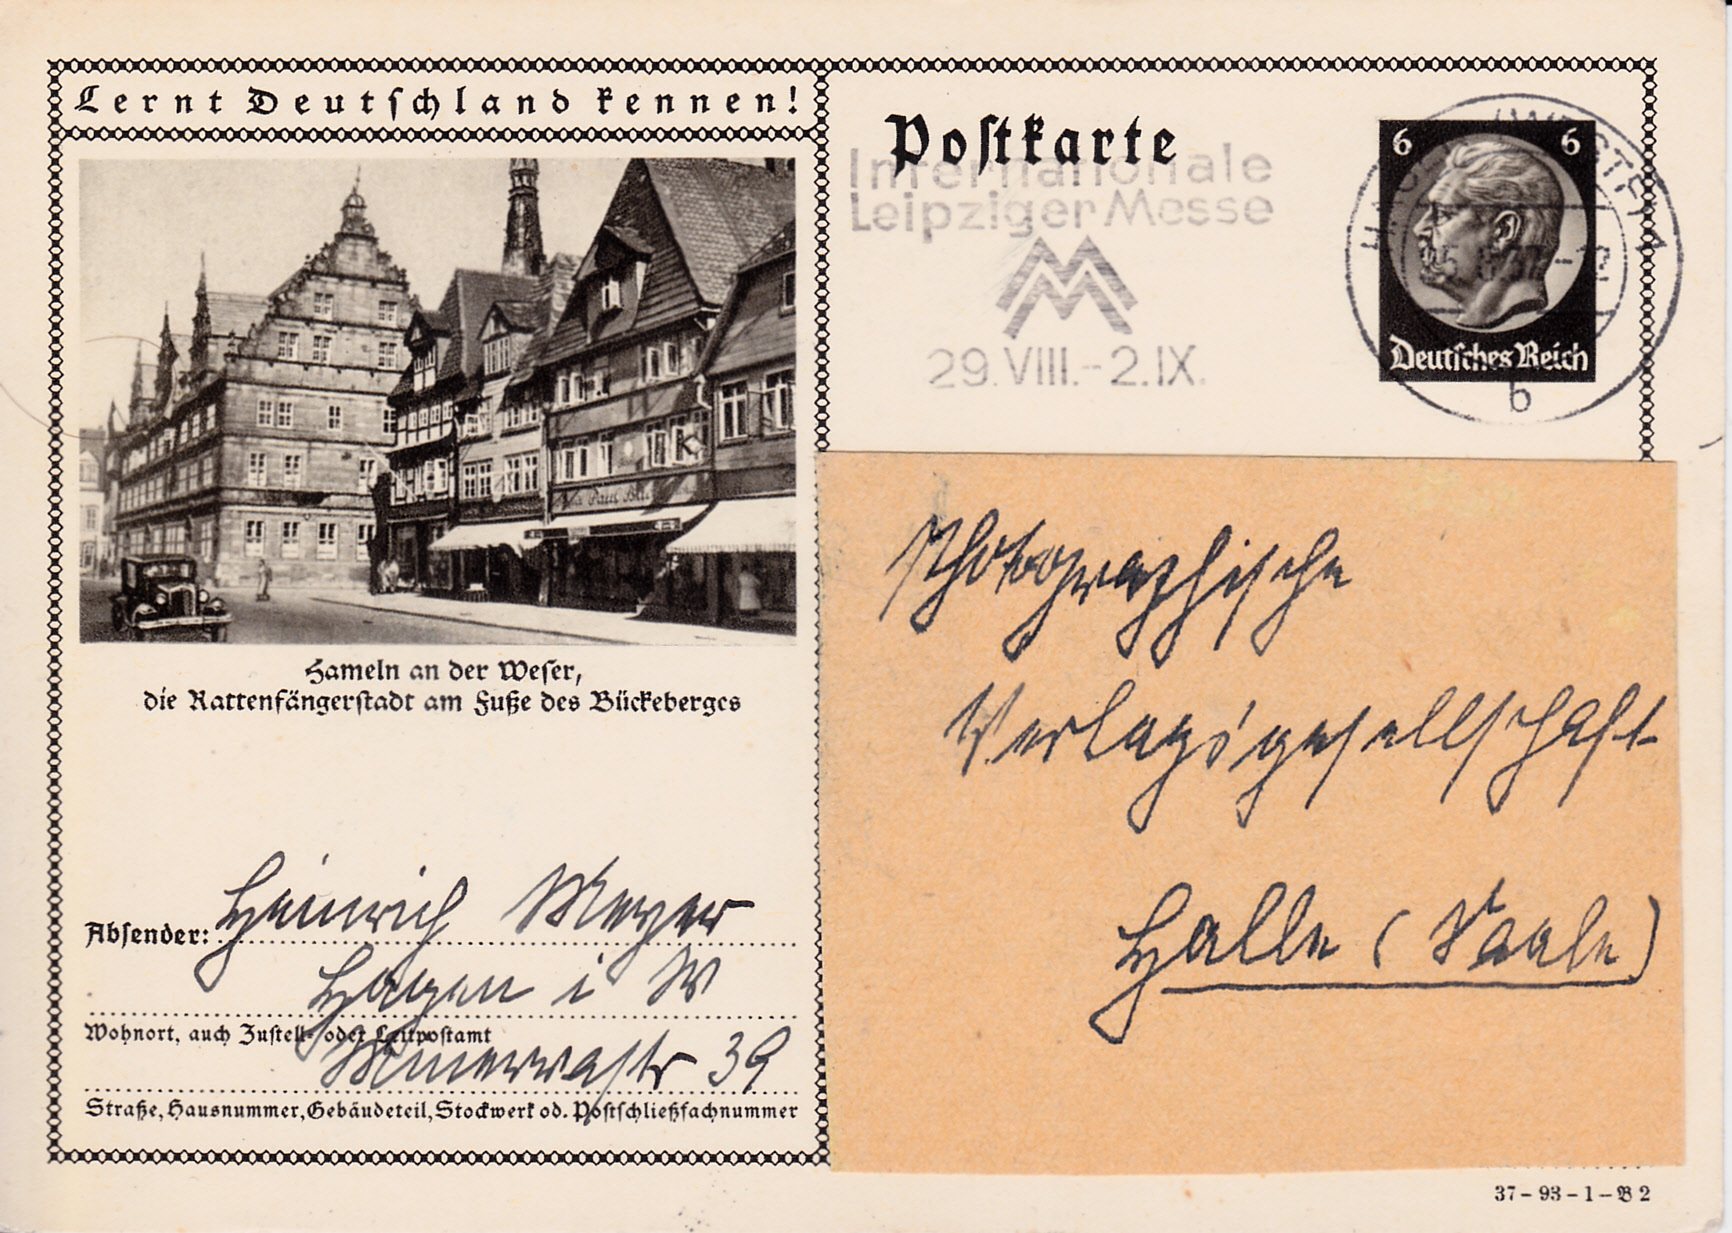 Lernt Deutschland kennen!
Hameln an der Weser,
die Rattenfängerstadt am Fuße des Bückeberges
Absender: Heinrich Meyer
Hagen i W
Wohnort, auch Zustell- oder Leitpostamt
Minervastr 39
Straße, Hausnummer, Gebäudeteil, Stockwerk od. Postschließfachnummer
Postkarte
Internationale
Leipziger Messe
29.VIII.-2.IX.
6 6
Deutsches Reich
HAGEN (WESTF) 1
b
Photographische
Verlagsgesellschaft
Halle (Saale)
37-93-1-B 2